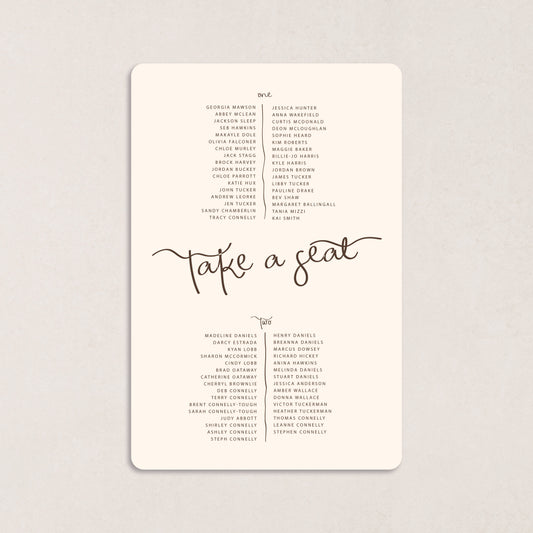 one
GEORGIA MAWSON
ABBEY MCLEAN
JACKSON SLEEP
SEB HAWKINS
MAKAYLE DOLE
OLIVIA FALCONER
CHLOE MURLEY
JACK STAGG
BROCK HARVEY
JORDAN BUCKEY
CHLOE PARROTT
KATIE HUX
JOHN TUCKER
ANDREW LEORKE
JEN TUCKER
SANDY CHAMBERLIN
TRACY CONNELLY
JESSICA HUNTER
ANNA WAKEFIELD
CURTIS MCDONALD
DEON MCLOUGHLAN
SOPHIE HEARD
KIM ROBERTS
MAGGIE BAKER
BILLIE-JO HARRIS
KYLE HARRIS
JORDAN BROWN
JAMES TUCKER
LIBBY TUCKER
PAULINE DRAKE
BEV SHAW
MARGARET BALLINGALL
TANIA MIZZI
KAI SMITH
take a seat
two
MADELINE DANIELS
DARCY ESTRADA
RYAN LOBB
SHARON MCCORMICK
CINDY LOBB
BRAD OATAWAY
CATHERINE OATAWAY
CHERRYL BROWNLIE
DEB CONNELLY
TERRY CONNELLY
BRENT CONNELLY-TOUGH
SARAH CONNELLY-TOUGH
JUDY ABBOTT
SHIRLEY CONNELLY
ASHLEY CONNELLY
STEPH CONNELLY
HENRY DANIELS
BREANNA DANIELS
MARCUS DOWSEY
RICHARD HICKEY
ANINA HAWKINS
MELINDA DANIELS
STUART DANIELS
JESSICA ANDERSON
AMBER WALLACE
DONNA WALLACE
VICTOR TUCKERMAN
HEATHER TUCKERMAN
THOMAS CONNELLY
LEANNE CONNELLY
STEPHEN CONNELLY